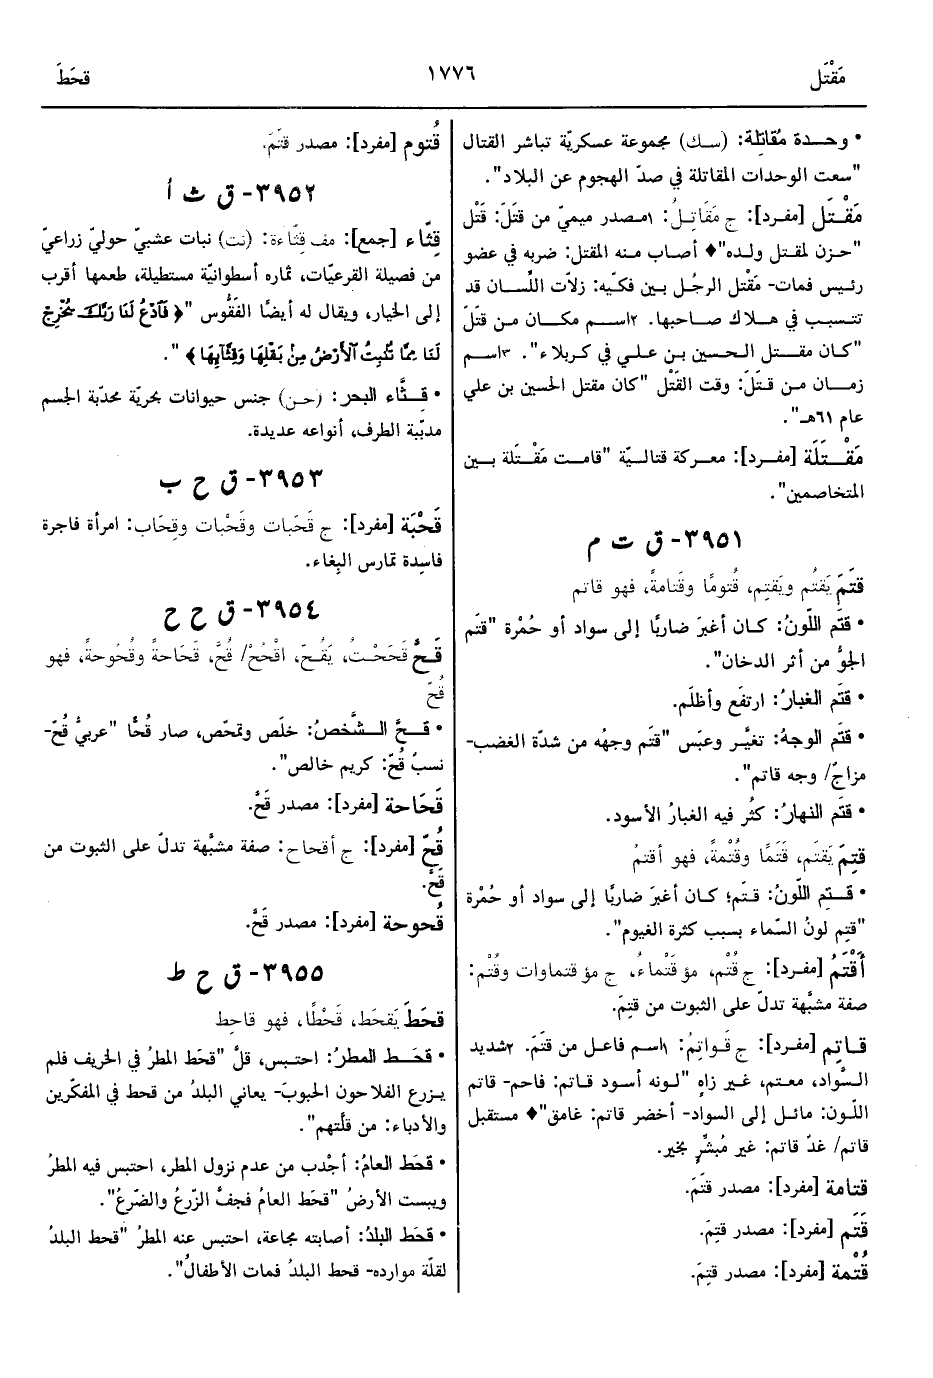 مَقْتَل
١٧٧٦
قحَطَ
• وحـدة مُقاتِلة: (سك) مجموعة عسكريّة تباشر القتال
"سعت الوحدات المقاتلة في صدّ الهجوم عن البلاد".
مَقْـتَل [مفـرد]: ج مَقَاتِـلُ: ١مـصدر ميميّ من قتَلَ: قَتْل
"حزن لمقتل ولده"♦ أصاب منه المقتل: ضربه في عضو
رئيس فمات- مَقْتل الرجُل بين فكّيه: زلاّت اللّسان قد
تتسبب في هلاك صاحبها. ٢اسم مكان من قتَلَ
"كان مقـتل الحسين بن علي في كربلاء". ٣اسم
زمـان من قـتَلَ: وقت القَتْل "كان مقتل الحسين بن علي
عام ٦١هـ".
مَقْـتَلَة [مفـرد]: معـركة قتاليّة "قامت مَقْتلة بـين
المتخاصمين".
٣٩٥١- ق ت م
قتَمَ يَقتُم ويَقتِم، قُتومًا وقَتامةً، فهو قاتم
• قتَم اللّونُ: كـان أغبرَ ضاربًا إلى سواد أو حُمْرة "قتَم
الجوُّ من أثر الدخان".
• قتَم الغبارُ: ارتفَع وأظلَم.
• قتَم الوجهُ: تغيَّر وعبَس "قتَم وجهُه من شدّة الغضب-
مزاجٌ/ وجه قاتم".
• قتَم النهارُ: كثُر فيه الغبارُ الأسود.
قتِمَ يَقتَم، قَتَمًا وقُتْمةً، فهو أقتمُ
• قـتِم اللّونُ: قـتَم؛ كـان أغبرَ ضاربًا إلى سواد أو حُمْرة
"قتِم لونُ السّماء بسبب كثرة الغيوم".
أَقْتَمُ [مفـرد]: ج قُتْم، مؤ قَتْماءُ، ج مؤ قتماوات وقُتْم:
صفة مشبَّهة تدلّ على الثبوت من قتِمَ.
قـاتِم [مفـرد]: ج قـواتِمُ: ١اسم فاعل من قتَمَ. ٢شديد
السَّواد، معتم، غير زاهٍ "لونه أسود قـاتم: فاحم- قاتم
اللّون: مائـل إلى السواد- أخضر قاتم: غامق"♦ مستقبل
قاتم/ غدٌ قاتم: غير مُبشِّرٍ بخير.
قتامة [مفرد]: مصدر قتَمَ.
قَتَم [مفرد]: مصدر قتِمَ.
قُتْمة [مفرد]: مصدر قتِمَ.
قُتوم [مفرد]: مصدر قتَمَ.
٣٩٥٢- ق ث أ
قِثّاء [جمع]: مف قِثّاءة: (نت) نبات عشبيّ حوليّ زراعيّ
من فصيلة القرعيّات، ثماره أسطوانيّة مستطيلة، طعمها أقرب
إلى الخيار، ويقال له أيضًا الفَقُّوس "﴿ فَٱدْعُ لَنَا رَبَّكَ يُخْرِجْ
لَنَا مِمَّا تُنۢبِتُ ٱلْأَرْضُ مِنۢ بَقْلِهَا وَقِثَّآئِهَا ﴾ ".
• قـثَّاء البحر: (حن) جنس حيوانات بحريّة محدّبة الجسم
مدبّبة الطرف، أنواعه عديدة.
٣٩٥٣- ق ح ب
قَحْبَة [مفرد]: ج قَحَبات وقَحْبات وقِحَاب: امرأة فاجرة
فاسِدة تمارس البِغاء.
٣٩٥٤- ق ح ح
قَحَّ قَحَحْتُ، يَقُحّ، اقْحُحْ/ قُحَّ، قَحَاحةً وقُحُوحةً، فهو
قُحّ
• قـحَّ الـشَّخصُ: خلَص وتمحّص، صار قُحًّا "عربيٌّ قُحّ-
نسبٌ قُحّ: كريم خالص".
قَحَاحة [مفرد]: مصدر قَحَّ.
قُحّ [مفرد]: ج أقحاح: صفة مشبَّهة تدلّ على الثبوت من
قَحَّ.
قُحوحة [مفرد]: مصدر قَحَّ.
٣٩٥٥- ق ح ط
قحَطَ يَقحَط، قَحْطًا، فهو قاحِط
• قحَـط المطرُ: احتبس، قلَّ "قحَط المطرُ في الخريف فلم
يـزرع الفلاحون الحبوبَ- يعاني البلدُ من قحط في المفكّرين
والأدباء: من قلَّتهم".
• قحَط العامُ: أجْدب من عدم نزول المطر، احتبس فيه المطرُ
ويبست الأرضُ "قحَط العامُ فجفَّ الزّرعُ والضّرعُ".
• قحَط البلدُ: أصابته مجاعة، احتبس عنه المطرُ "قحط البلدُ
لقلّة موارده- قحط البلدُ فمات الأطفالُ".